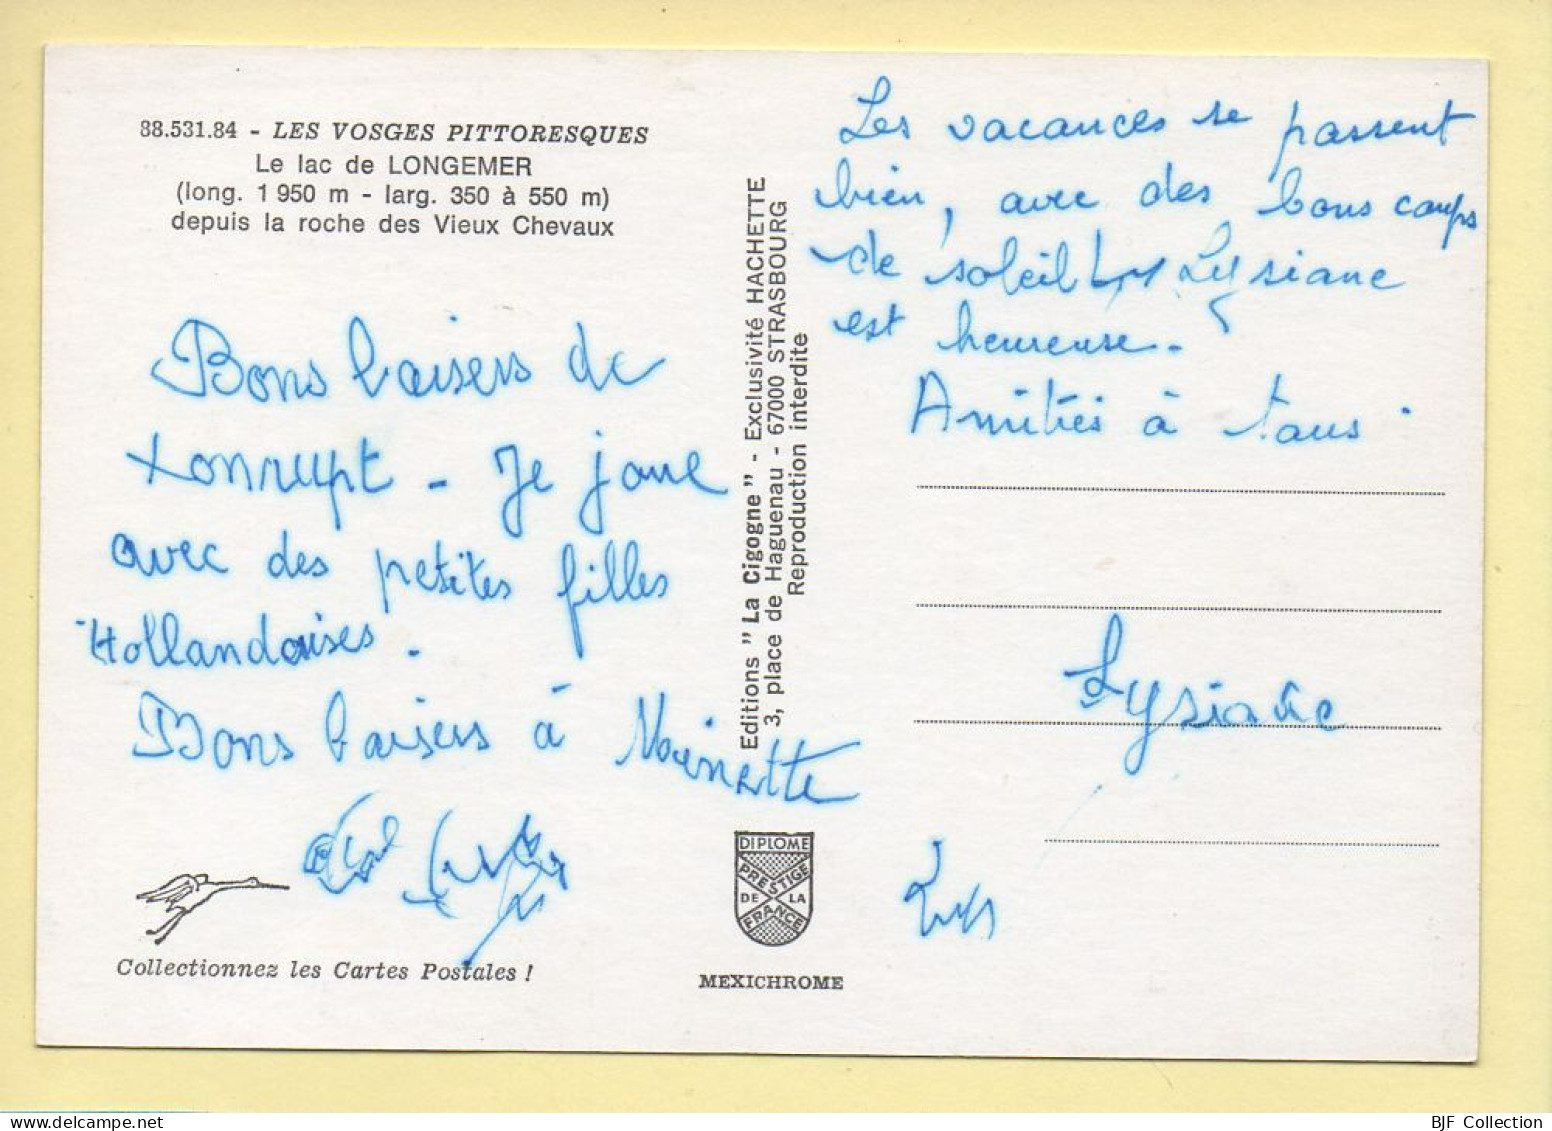 88.531.84 - LES VOSGES PITTORESQUES
Le lac de LONGEMER
(long. 1 950 m - larg. 350 à 550 m)
depuis la roche des Vieux Chevaux
Bons baisers de
Xonrupt - Je joue
avec des petites filles
Hollandaises.
Bons baisers à Minette
Collectionnez les Cartes Postales !
Editions "La Cigogne" - Exclusivité HACHETTE
3, place de Haguenau - 67000 STRASBOURG
Reproduction interdite
DIPLOME
PRESTIGE
DE LA
FRANCE
MEXICHROME
Les vacances se passent
bien, avec des bons coups
de soleil Lysiane
est heureuse.
Amitiés à tous
Lysiane
BJF Collection